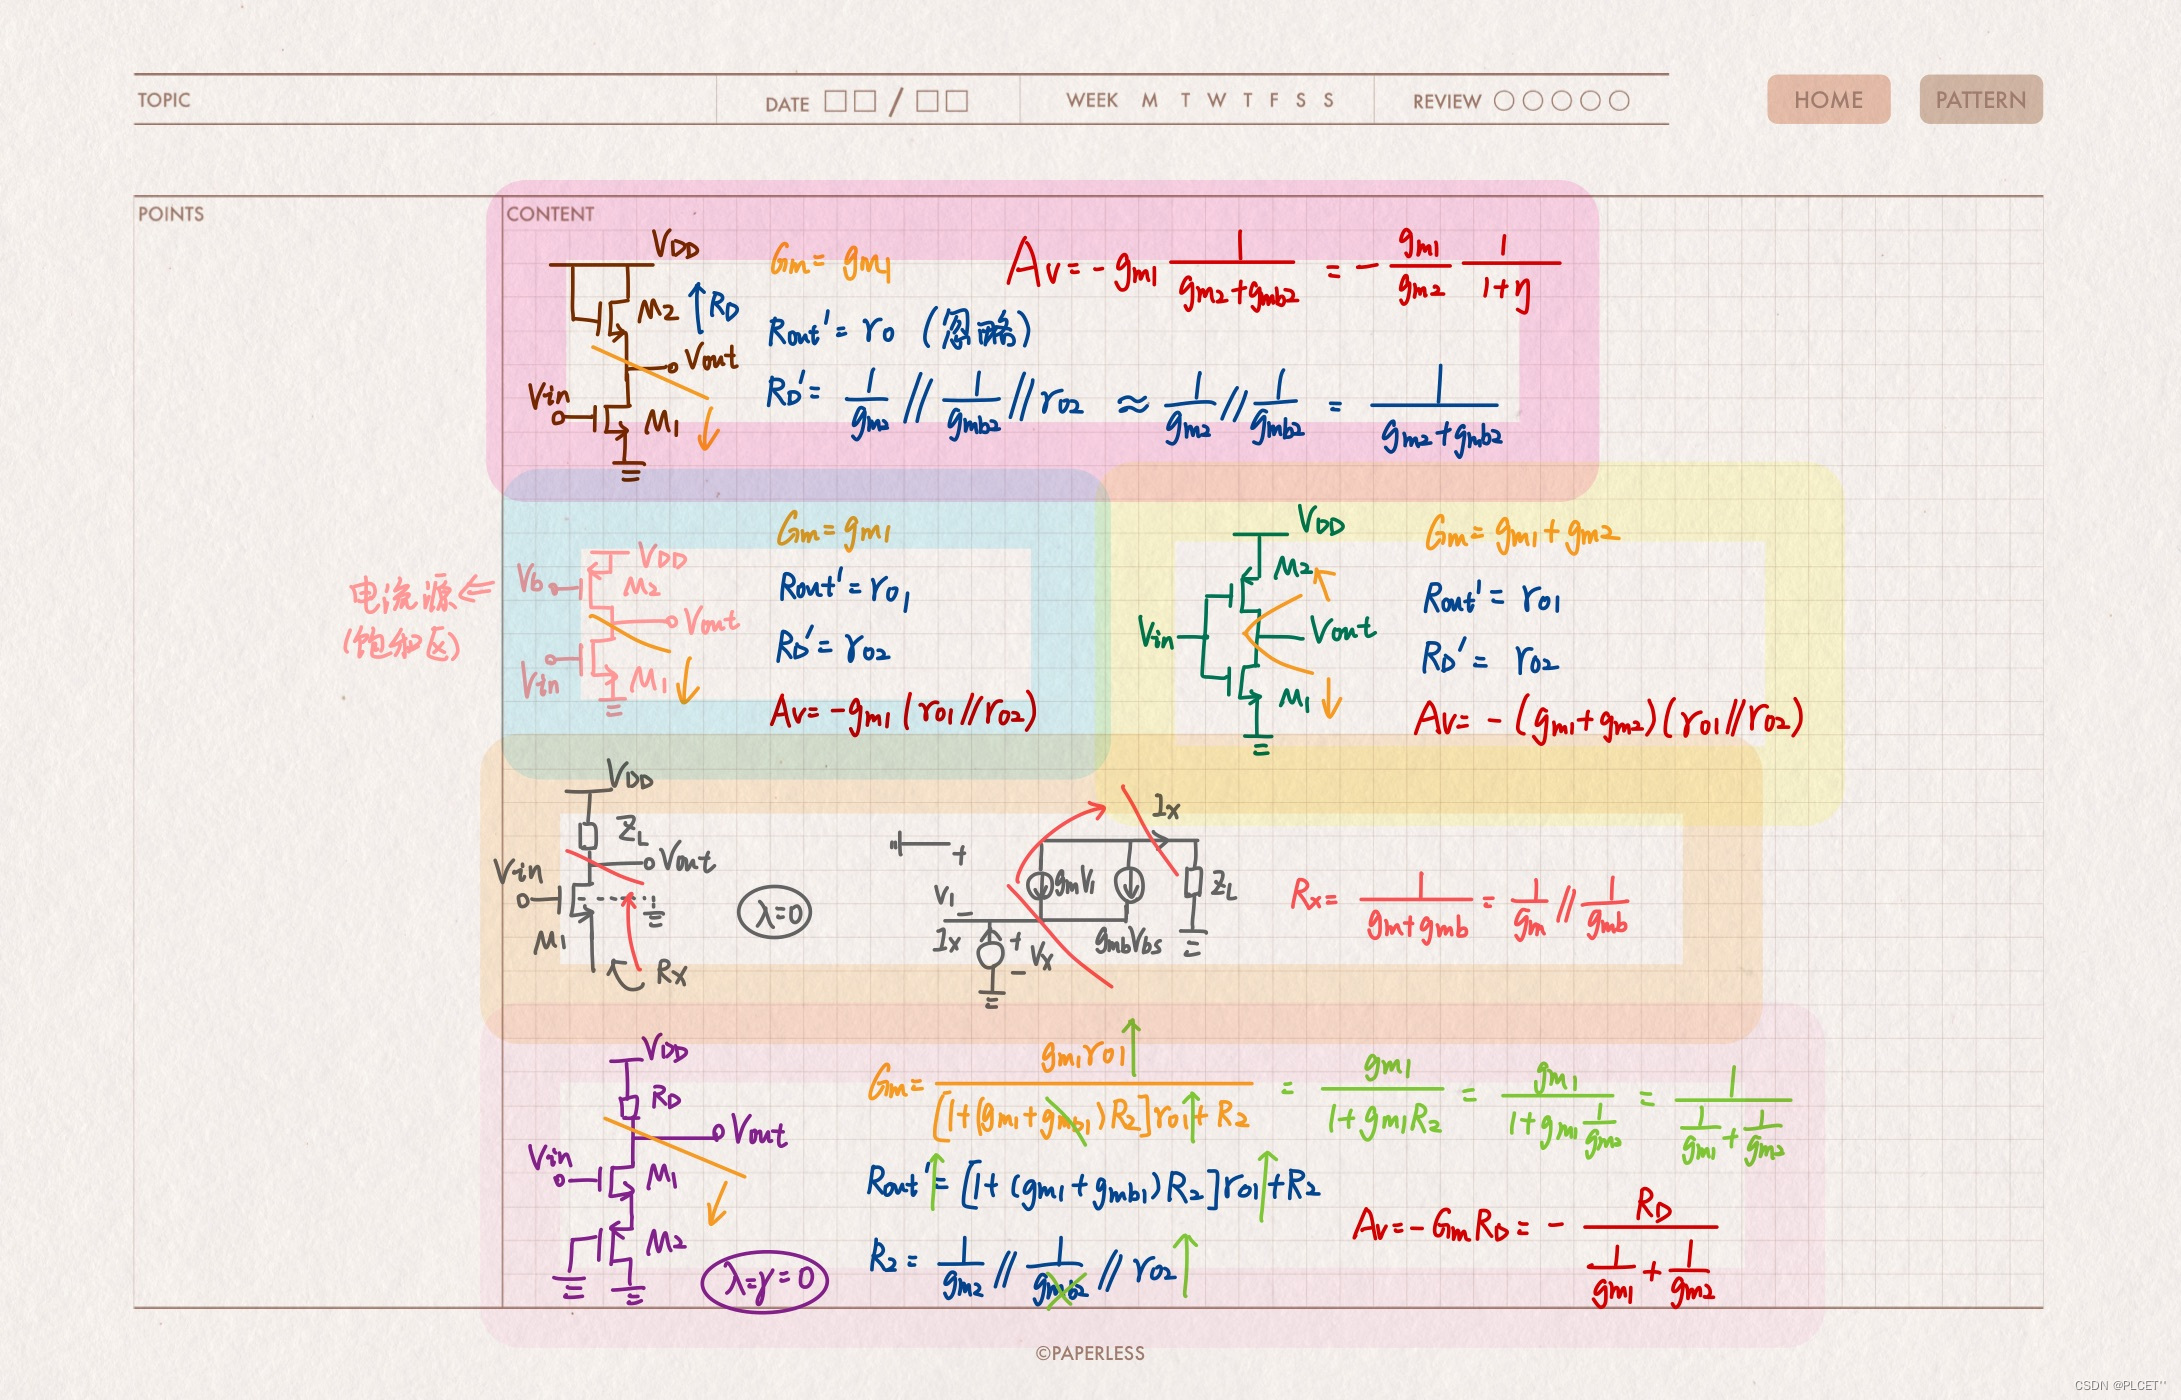 TOPIC DATE / WEEK M T W T F S S REVIEW HOME PATTERN
POINTS CONTENT
VDD
M2 RD
Vout
Vin
M1
Gm = gm1
Av = - gm1 1/(gm2+gmb2) = - gm1/gm2 1/(1+η)
Rout' = ro (忽略)
RD' = 1/gm2 // 1/gmb2 // ro2 ≈ 1/gm2 // 1/gmb2 = 1/(gm2+gmb2)
电流源 ⇐
(饱和区)
VDD
Vb M2
Vout
Vin M1
Gm = gm1
Rout' = ro1
RD' = ro2
Av = -gm1 (ro1//ro2)
VDD
M2
Vin Vout
M1
Gm = gm1 + gm2
Rout' = ro1
RD' = ro2
Av = - (gm1+gm2)(ro1//ro2)
VDD
ZL
Vout
Vin
M1
Rx
λ=0
Ix
+
V1 gmV1 ZL
-
Ix + Vx gmbVbs
-
Rx = 1/(gm+gmb) = 1/gm // 1/gmb
VDD
RD
Vout
Vin M1
M2
λ=γ=0
Gm = gm1ro1/([1+(gm1+gmb1)R2]ro1+R2) = gm1/(1+gm1R2) = gm1/(1+gm1 1/gm2) = 1/(1/gm1 + 1/gm2)
Rout' = [1+(gm1+gmb1)R2]ro1+R2
Av = -GmRD = - RD/(1/gm1 + 1/gm2)
R2 = 1/gm2 // 1/gmb2 // ro2
©PAPERLESS
CSDN @PLCET''